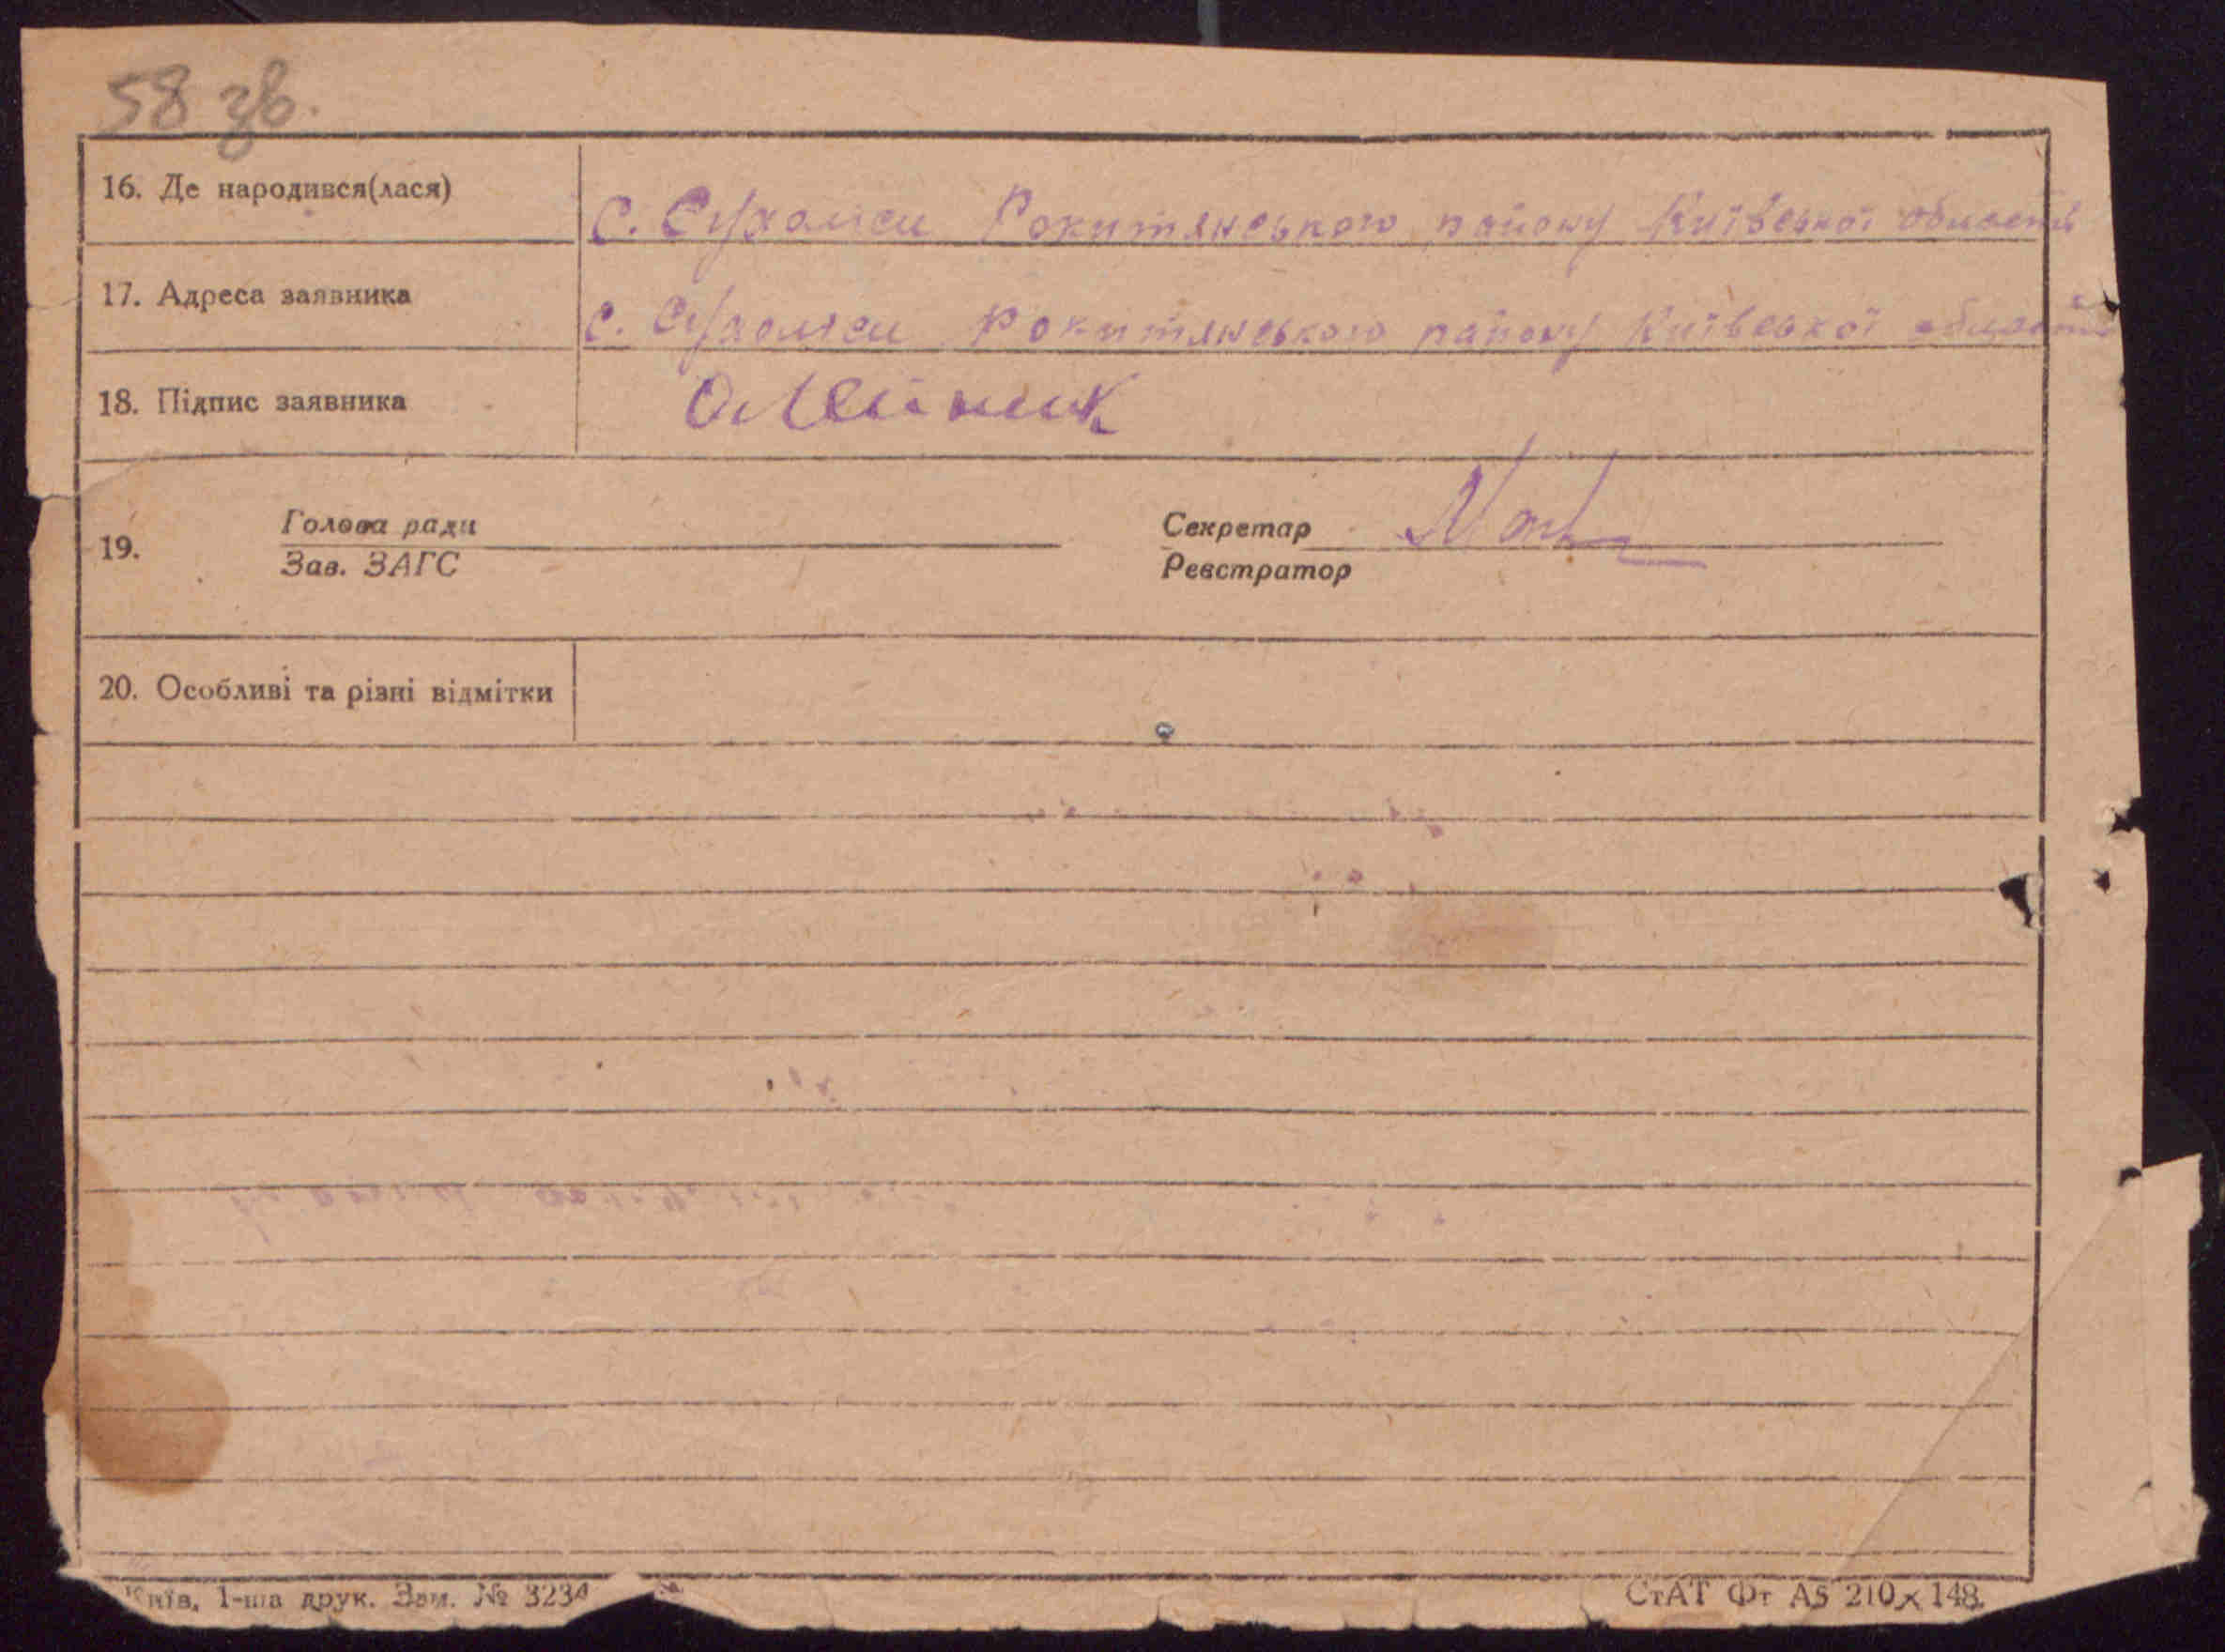 58 зв.
16. Де народився(лася)
с. Сухоліси Рокитянського району Київської області
17. Адреса заявника
с. Сухоліси Рокитянського району Київської області
18. Підпис заявника
Олейник
19.
Голова ради
Зав. ЗАГС
Секретар
Реєстратор
20. Особливі та різні відмітки
Київ, 1-ша друк. Зам. № 3234
СтАТ Фт А5 210×148.